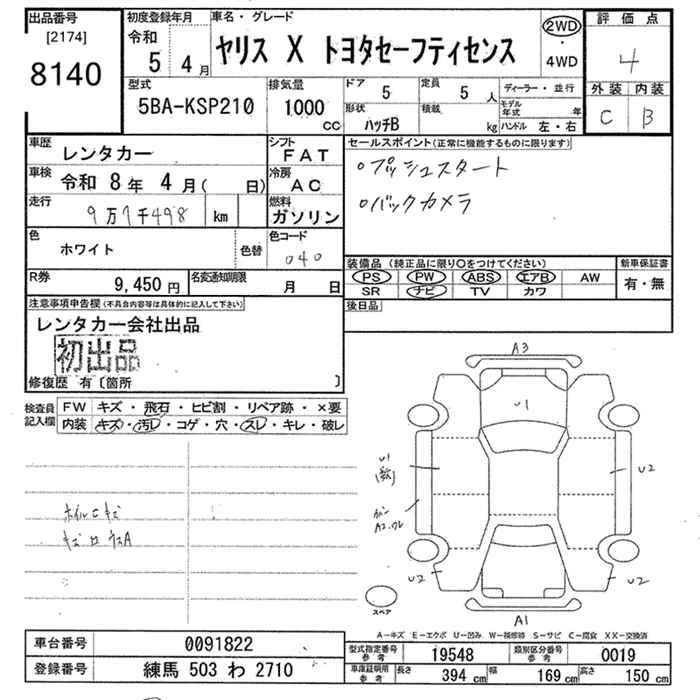 出品番号
[2174]
8140
初度登録年月
令和
5 4月
車名・グレード
ヤリス X トヨタセーフティセンス
2WD
・
4WD
評価点
4
外装 内装
C B
型式
5BA-KSP210
排気量
1000
CC
ドア
5
形状
ハッチB
定員
5人
積載
kg
ディーラー・並行
モデル年式 年
ハンドル 左・右
車歴
レンタカー
シフト
FAT
車検
令和 8年 4月( 日)
冷房
AC
走行
9万7千498 km
燃料
ガソリン
色
ホワイト
色替
色コード
040
R券
9,450円
名変通知期限
月 日
セールスポイント(正常に機能するものに限ります)
○プッシュスタート
○バックカメラ
装備品(純正品に限り○をつけてください)
PS PW ABS エアB AW
SR ナビ TV カワ
新車保証書
有・無
後日品
注意事項申告欄(不具合内容等は具体的に記入して下さい)
レンタカー会社出品
初出品
修復歴 有〔箇所 〕
検査員
記入欄
FW キズ・飛石・ヒビ割・リペア跡・×要
内装 キズ・汚レ・コゲ・穴・スレ・キレ・破レ
ホイルCキズ
A3
U1
U1
U2
A2
U2
U2
A1
スペア
A-キズ E-エクボ U-凹み W-補修跡 S-サビ C-腐食 XX-交換済
車台番号
0091822
登録番号
練馬 503 わ 2710
型式指定番号
参考
19548
類別区分番号
参考
0019
車庫証明用
参考
長さ 394 cm 幅 169 cm 高さ 150 cm